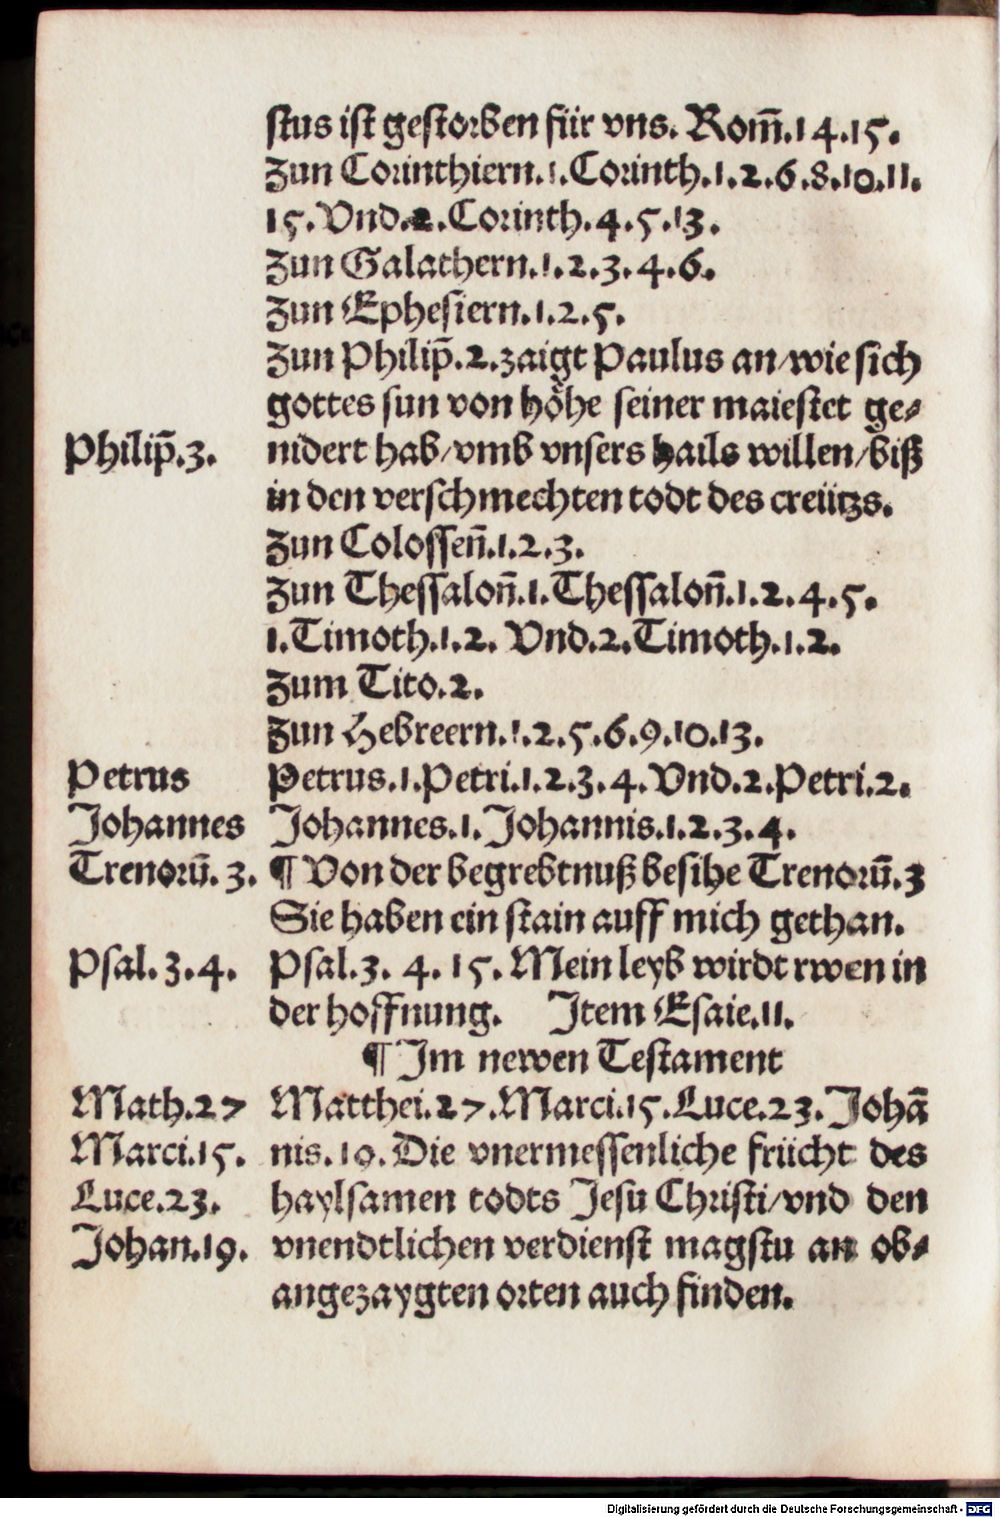 stus ist gestorben für vns. Rom̃.14.15.
Zun Corinthiern.1.Corinth.1.2.6.8.10.11.
15.Vnd.2.Corinth.4.5.13.
Zun Galathern.1.2.3.4.6.
Zun Ephesiern.1.2.5.
Zun Philip̃.2.zaigt Paulus an/wie sich
gottes sun von hoͤhe seiner maiestet ge⸗
Philip̃.3. nidert hab/vmb vnsers hails willen/biß
in den verschmechten todt des creützs.
Zun Colosseñ.1.2.3.
Zun Thessaloñ.1.Thessaloñ.1.2.4.5.
1.Timoth.1.2. Vnd.2.Timoth.1.2.
Zum Tito.2.
Zun Hebreern.1.2.5.6.9.10.13.
Petrus Petrus.1.Petri.1.2.3.4.Vnd.2.Petri.2.
Johannes Johannes.1.Johannis.1.2.3.4.
Trenorũ.3. ¶ Von der begrebtnuß besihe Trenorũ.3
Sie haben ein stain auff mich gethan.
Psal.3.4. Psal.3. 4. 15. Mein leyb wirdt rwen in
der hoffnung. Item Esaie.11.
¶ Im newen Testament
Math.27 Matthei.27.Marci.15.Luce.23.Johã
Marci.15. nis.19.Die vnermessenliche frücht des
Luce.23. haylsamen todts Jesu Christi/vnd den
Johan.19. vnendtlichen verdienst magstu an ob⸗
angezaygten orten auch finden.
Digitalisierung gefördert durch die Deutsche Forschungsgemeinschaft - DFG